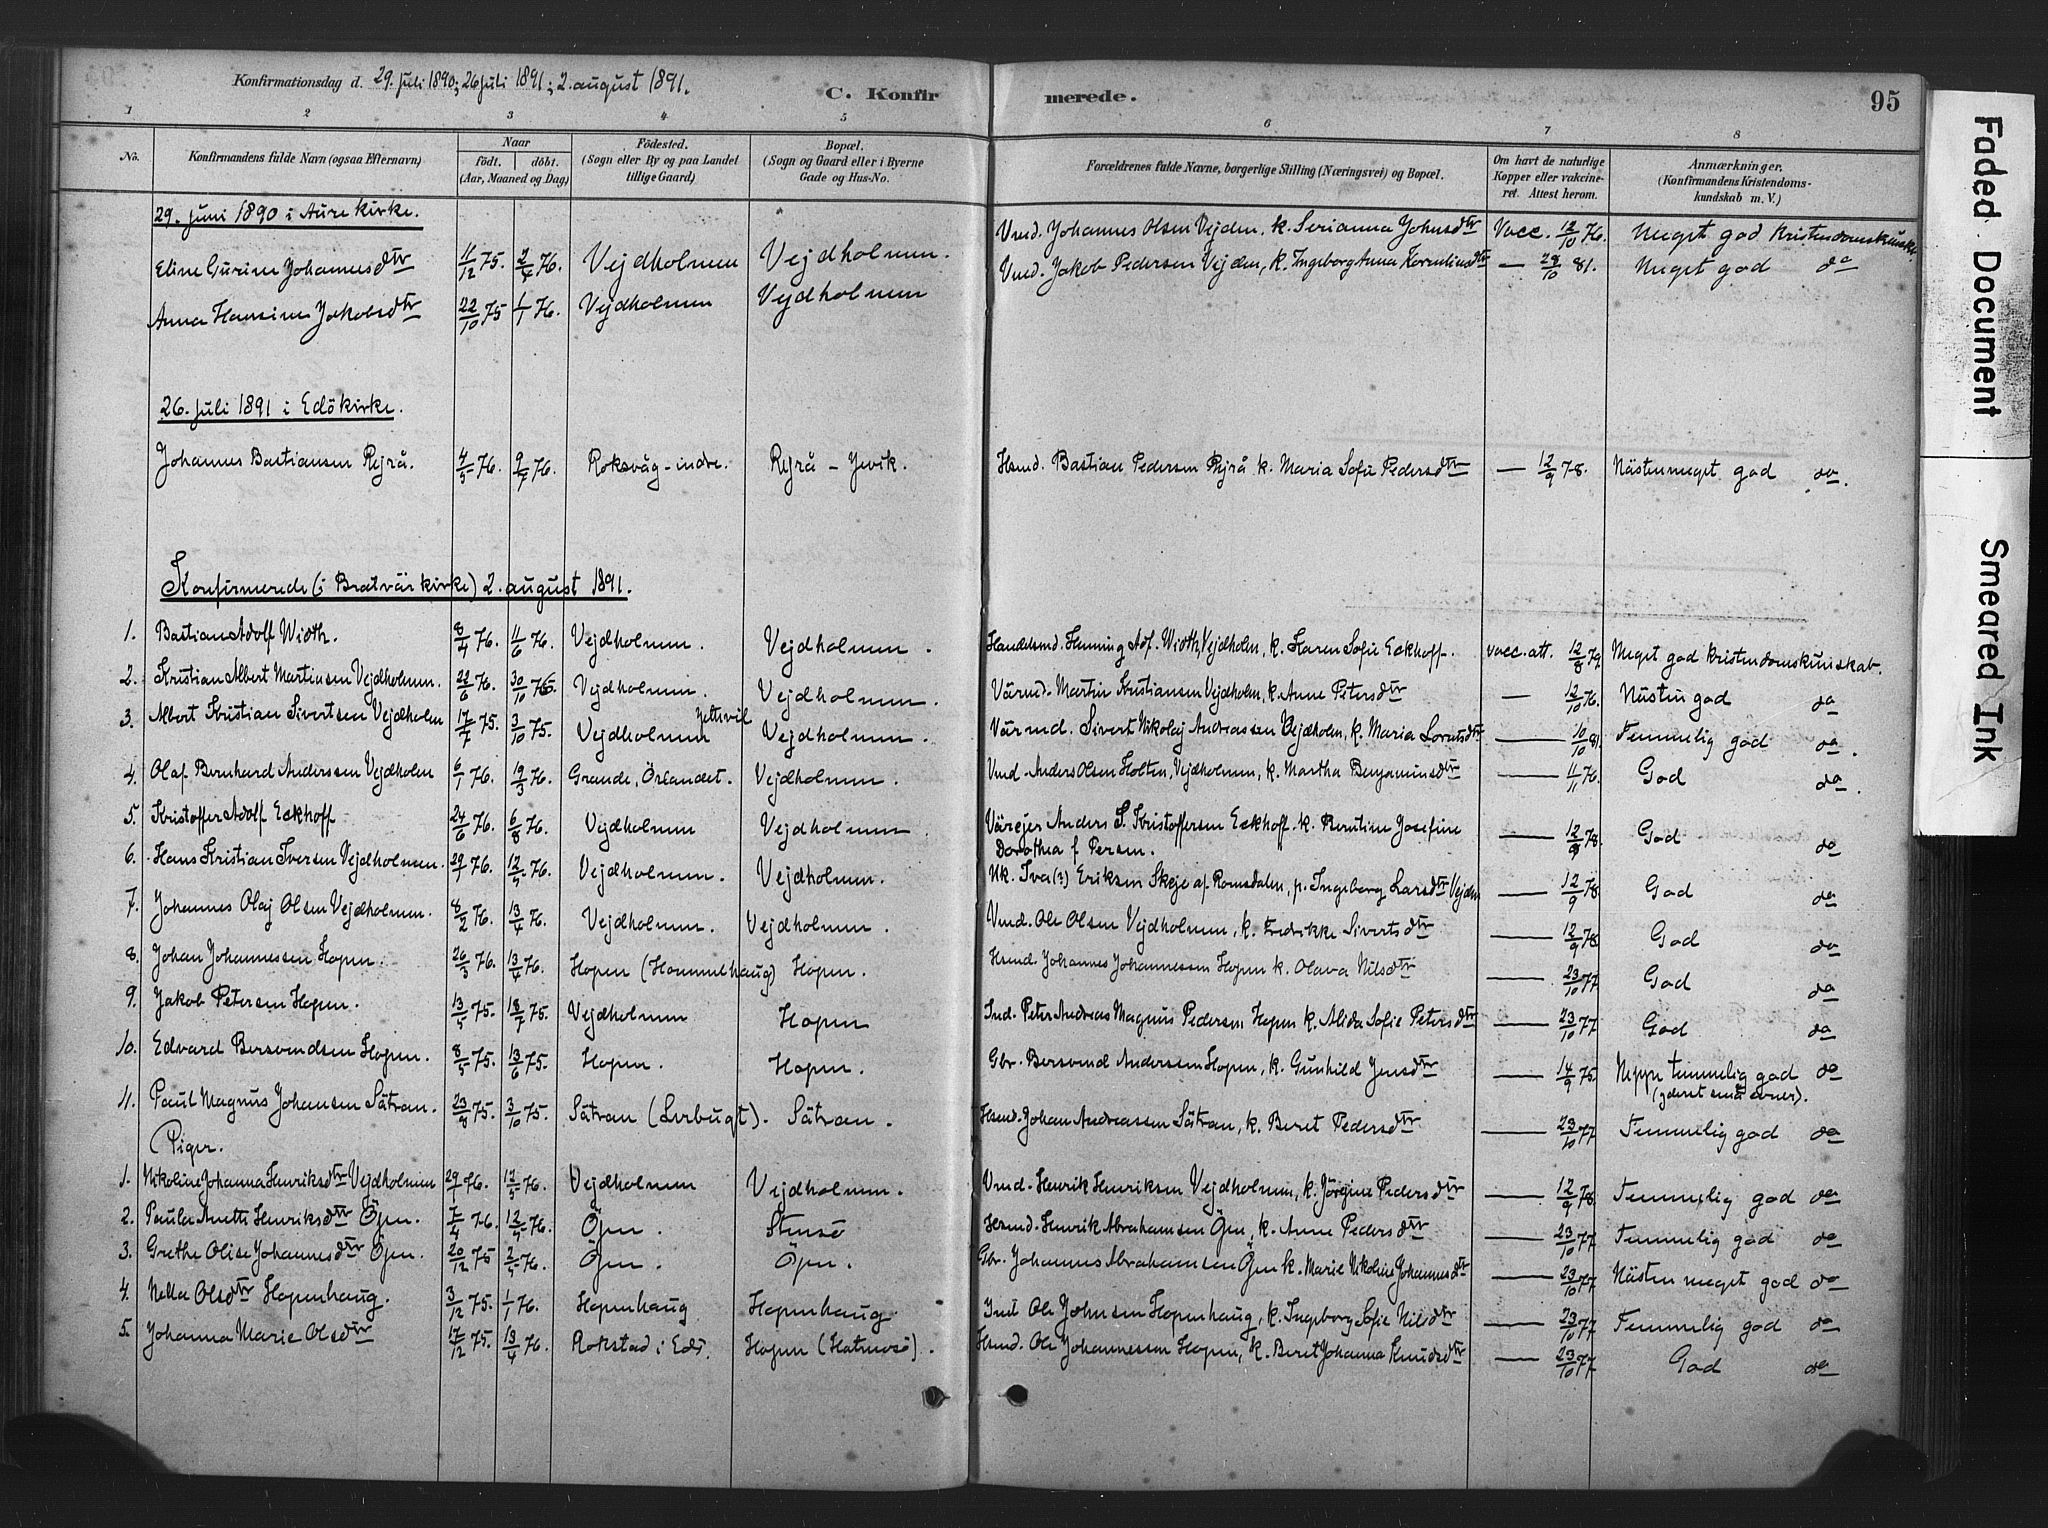 Konfirmationsdag d. 29. juli 1890; 26 juli 1891; 2. august 1891.
C. Konfirmerede.
95
1 2 3 4 5 6 7 8
No.
Konfirmandens fulde Navn (ogsaa Efternavn)
Naar
födt. döbt.
(Aar, Maaned og Dag)
Födested.
(Sogn eller By og paa Landet
tillige Gaard)
Bopæl.
(Sogn og Gaard eller i Byerne
Gade og Hus-No.
Forældrenes fulde Navne, borgerlige Stilling (Næringsvei) og Bopæl.
Om havt de naturlige
Kopper eller vakcine-
ret. Attest herom.
Anmærkninger.
(Konfirmandens Kristendoms-
kundskab m. V.)
29. juni 1890 i Aure kirke.
Eline Gurine Johannesdtr 11/12 75. 2/4 76. Vejdholmen Vejdholmen. Vmd. Johannes Olsen Vejden, k. Serianna Johnsdtr Vacc. 12/10 76. Meget god kristendomskundsk.
Anna Hansine Jakobsdtr 22/10 75 1/1 76. Vejdholmen Vejdholmen Vmd. Jakob Pedersen Vejden, k. Ingeborg Anna Korneliusdtr — 29/10 81. Meget god do
26. juli 1891 i Edö kirke.
Johannes Bastiansen Rejrå. 4/5 76. 9/7 76. Roksvåg-indre. Rejrå - Jevik. Hsmd. Bastian Pedersen Rejrå k. Maria Sofie Pedersdtr — 12/9 78. Nästen meget god do.
Konfirmerede (i Bratvär kirke) 2. august 1891.
1. Bastian Adolf Width. 8/4 76. 11/6 76. Vejdholmen. Vejdholmen. Handelsmd. Henning Adf. Width, Vejdholm, k. Karen Sofie Eckhoff. vacc. att. 12/8 79. Meget god kristendomskunskab.
2. Kristian Albert Martinsen Vejdholmen. 22/6 76. 30/10 76. Vejdholmen. Vejdholmen. Värmd. Martin Kristiansen Vejdholm, k. Anne Petersdtr — 12/10 76. Nästen god do
3. Albert Kristian Sivertsen Vejdholm 17/7 75. 3/10 75. Vejdholmen Vejdholmen. Värmd. Sivert Nikolaj Andreassen Vejdholm, k. Maria Lorntsdtr — 10/10 81. Temmelig god do.
4. Olaf Bernhard Anderssen Vejdholm 6/1 76. 19/3 76. Grande, Örlandet. Vejdholmen. Vmd. Anders Olsen Holten, Vejdholmen, k. Martha Benjaminsdtr — 11/11 76. God do.
5. Kristoffer Adolf Eckhoff 24/6 76. 6/8 76. Vejdholmen Vejdholmen Värejer Anders S. Kristoffersen Eckhoff. k. Berntine Josefine
Dorothea f. Persen. — 12/9 78. God do
6. Hans Kristian Iversen Vejdholmen. 29/1 76. 12/5 76. Vejdholmen. Vejdholmen. Uk. Iva(?) Eriksen Skeje af Romsdalen, p. Ingeborg Larsdtr Vejden — 12/9 78 God do
7. Johannes Olaj Olsen Vejdholmen. 8/2 76. 13/4 76. Vejdholmen. Vejdholmen. Vmd. Ole Olsen Vejdholmen, k. Fredrikke Sivertsdtr — 12/9 78. God do
8. Johan Johannessen Hopen. 26/3 76. 13/4 76. Hopen (Hommelhaug) Hopen. Hsmd. Johannes Johannessen Hopen k. Olava Nilsdtr — 23/10 77 God do
9. Jakob Petersen Hopen. 13/5 75. 18/7 75. Vejdholmen Hopen Ind. Peter Andreas Magnus Pedersen Hopen k. Alida Sofie Petersdtr — 23/10 77 God do
10. Edvard Bersvendsen Hopen. 8/5 75. 13/6 75. Hopen. Hopen. Gbr. Bersvend Andersen Hopen, k. Gunhild Jensdtr — 14/9 75. Neppe temmelig god do
(yderst små evner).
11. Paul Magnus Johansen Sätran. 23/8 75. 3/10 75. Sätran (Lerbugt). Sätran. Hsmd. Johan Andreassen Sätran, k. Beret Pedersdtr — 23/10 77 Temmelig god do
Piger.
1. Nikoline Johanna Henriksdtr Vejdholmen 29/1 76. 12/5 76. Vejdholmen Vejdholmen. Vmd. Henrik Henriksen Vejdholmen, k. Jörgine Pedersdtr — 12/9 78 Temmelig god do
2. Paula Anette Henriksdtr Öjen. 7/4 76. 12/5 76. Öjen. Stensö Hsmd. Henrik Abrahamsen Öjen, k. Anne Pedersdtr — 23/10 77 Temmelig god do
3. Grethe Olise Johannesdtr Öjen. 20/12 75 2/5 76. Öjen. Öjen. Gbr. Johannes Abrahamsen Öjen k. Marie Nikoline Johannesdtr — 23/10 77 Nästen meget god do
4. Nella Olsdtr Hopenhaug. 3/12 75. 1/1 76. Hopenhaug Hopenhaug. Ind. Ole Johnsen Hopenhaug, k. Ingeborg Sofie Nilsdtr — 23/10 77 Temmelig god do
5. Johanna Marie Olsdtr 17/12 75. 13/4 76. Rokstad i Edö. Hopen (Hatmosö). Hsmd. Ole Johannessen Hopen, k. Beret Johanna Knudsdtr — 23/10 77 God do
Faded Document
Smeared Ink